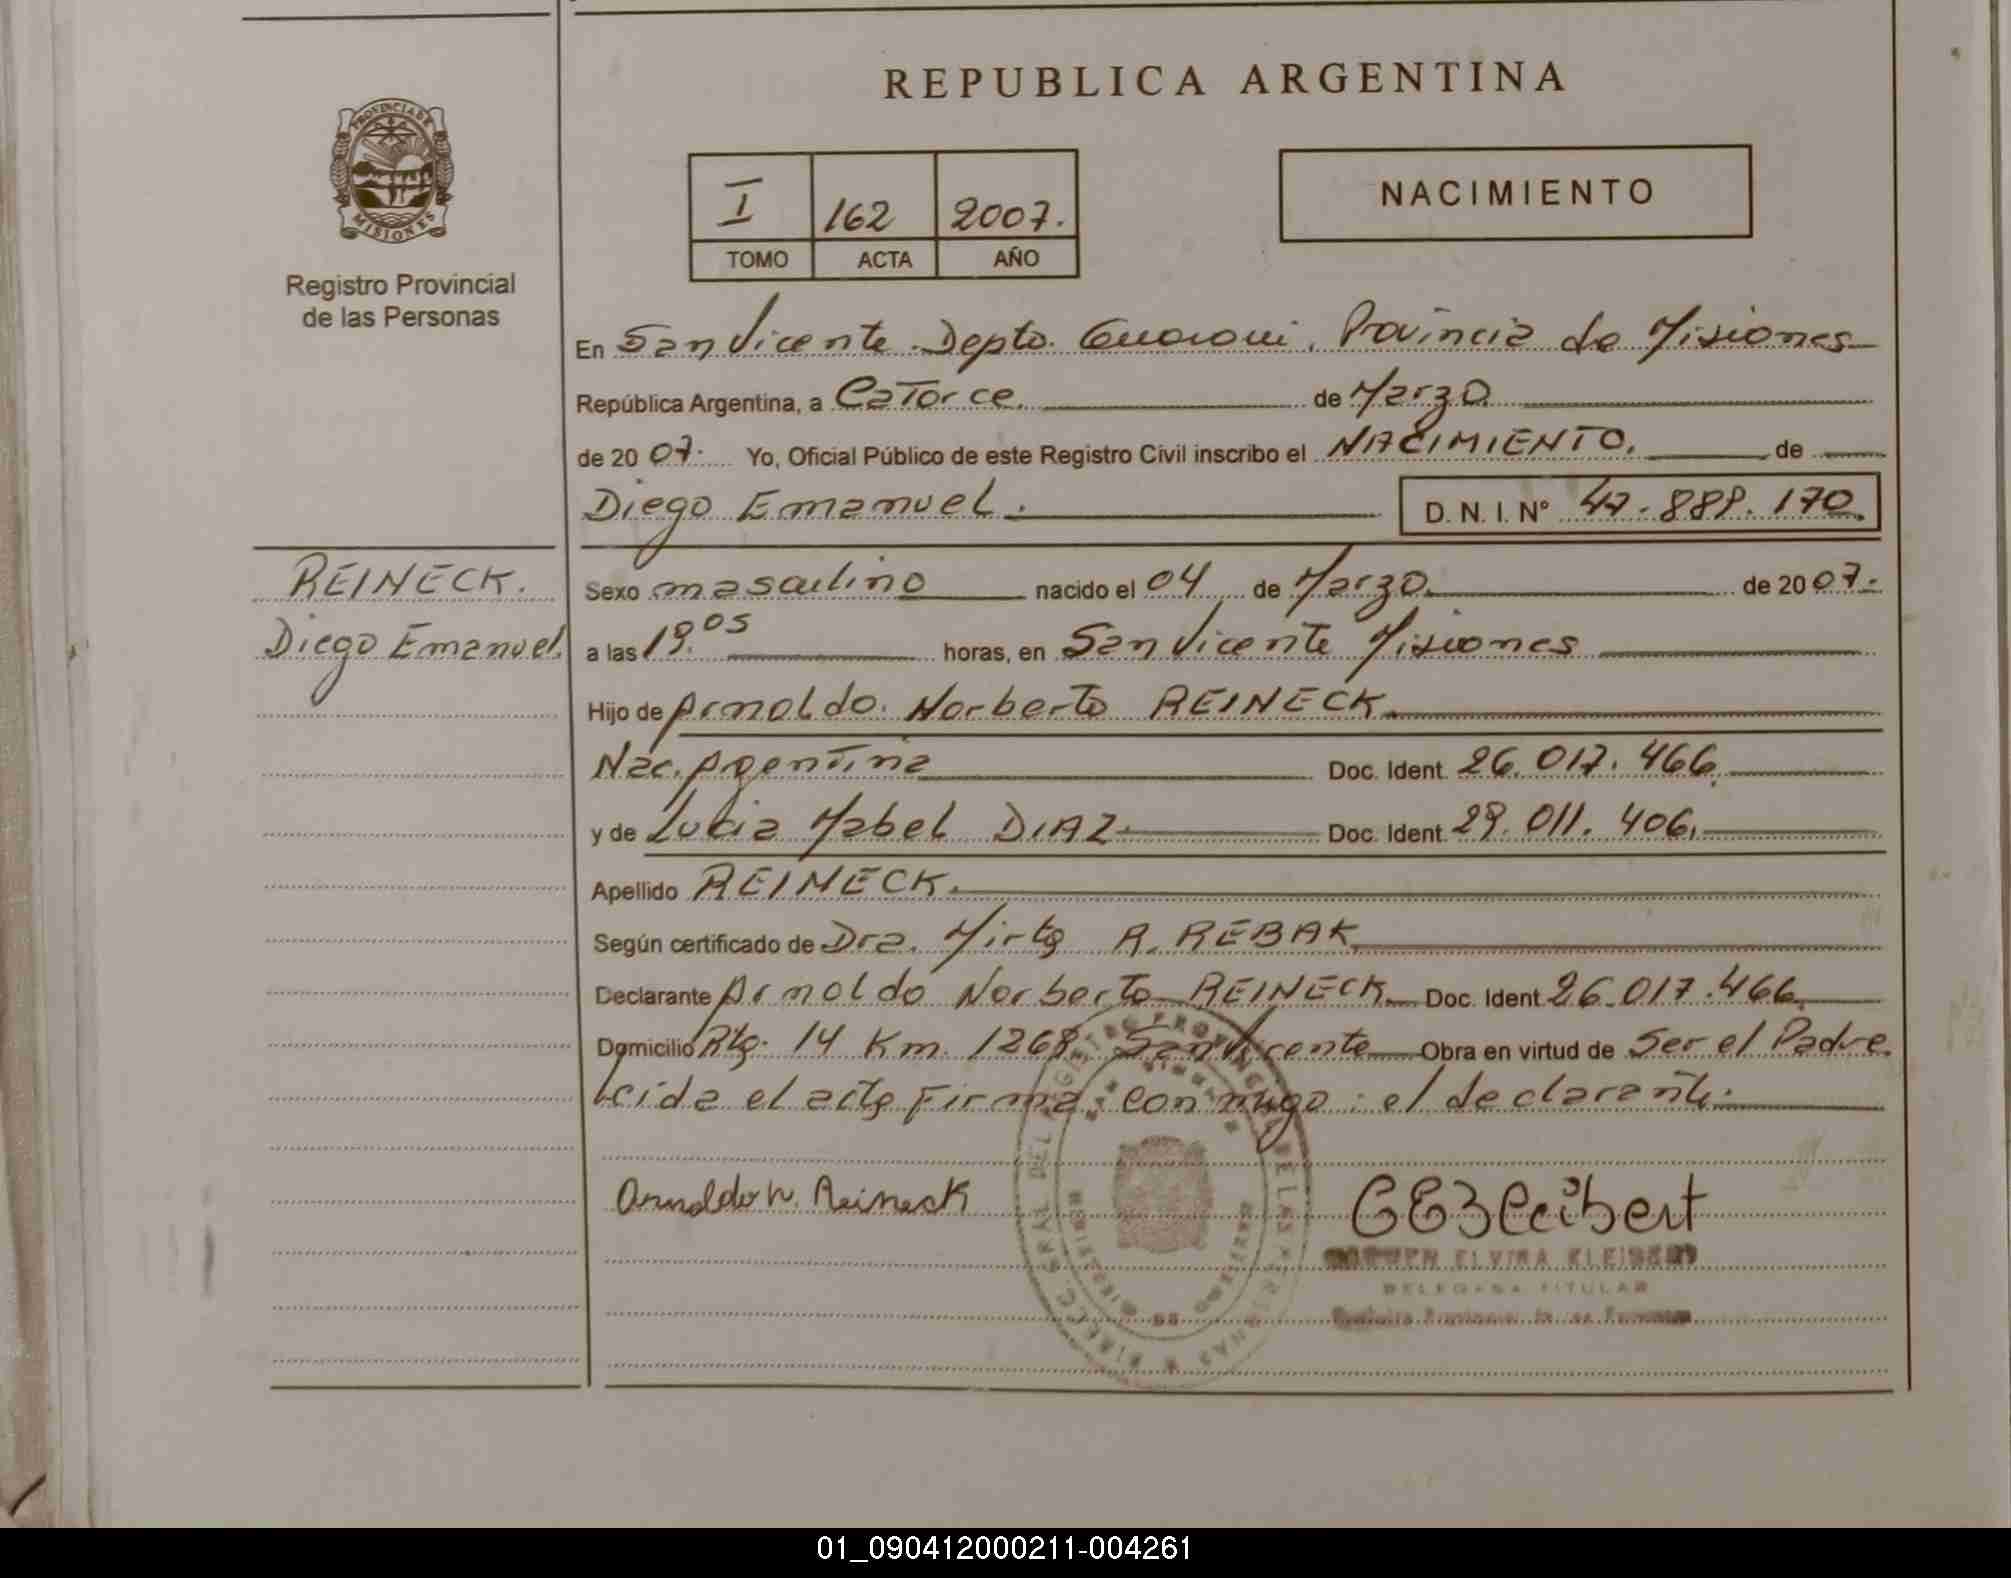 REPUBLICA ARGENTINA
PROVINCIA DE
MISIONES
Registro Provincial
de las Personas
I 162 2007.
TOMO ACTA AÑO
NACIMIENTO
En San Vicente Depto. Guarani, Provincia de Misiones
República Argentina, a Catorce. de Marzo
de 2007. Yo, Oficial Público de este Registro Civil inscribo el NACIMIENTO. de
Diego Emanuel. D. N. I. Nº 47.889.170.
REINECK.
Diego Emanuel.
Sexo masculino nacido el 04 de Marzo. de 2007.
a las 19.05 horas, en San Vicente Misiones
Hijo de Arnoldo. Norberto REINECK.
Nac. Argentina Doc. Ident. 26.017.466.
y de Lucia Mabel DIAZ Doc. Ident. 29.011.406.
Apellido REINECK.
Según certificado de Dra. Mirta A. REBAK
Declarante Arnoldo Norberto REINECK Doc. Ident. 26.017.466.
Domicilio Rta. 14 Km. 1268 San Vicente Obra en virtud de Ser el Padre.
Leida el acta Firma conmigo: el declarante.
Arnoldo N. Reineck
ELVIRA KLEIBERT
TITULAR
01_090412000211-004261